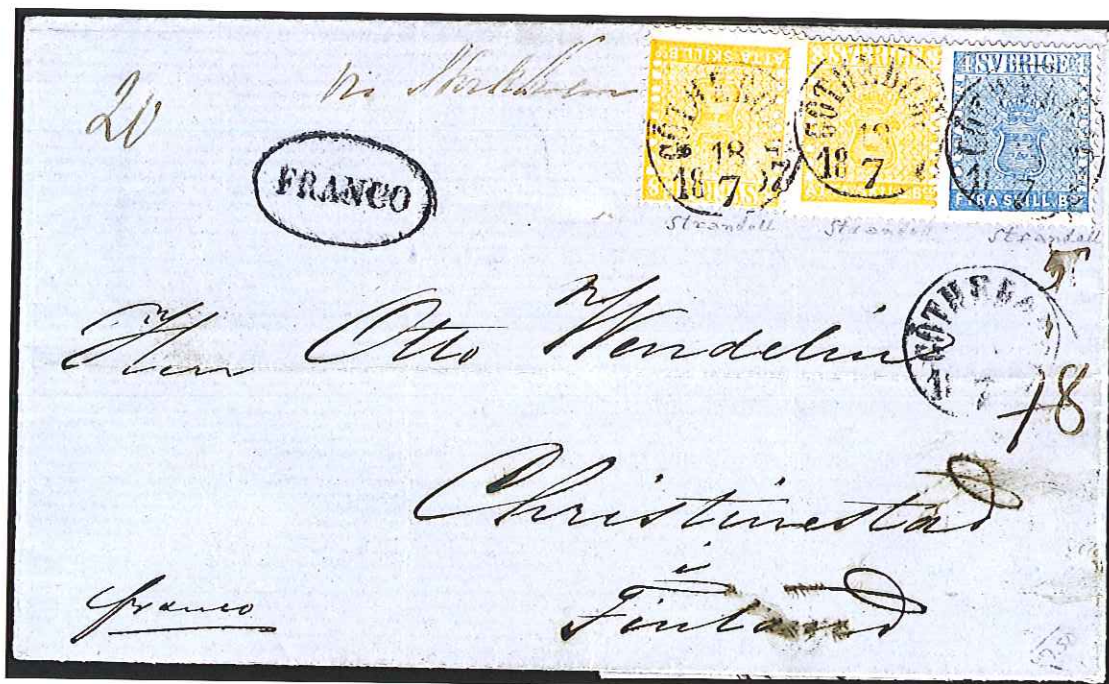 20
FRANCO
ÅTTA SKILL. Bco
SVERIGE
FYRA SKILL. Bco
GÖTHEBORG
18
18 7
GÖTHEBORG
18 7
Strandell
Strandell
Strandell
GÖTHEBORG
18
Herr Otto Wendelin
Christinestad
i
Finland
franco